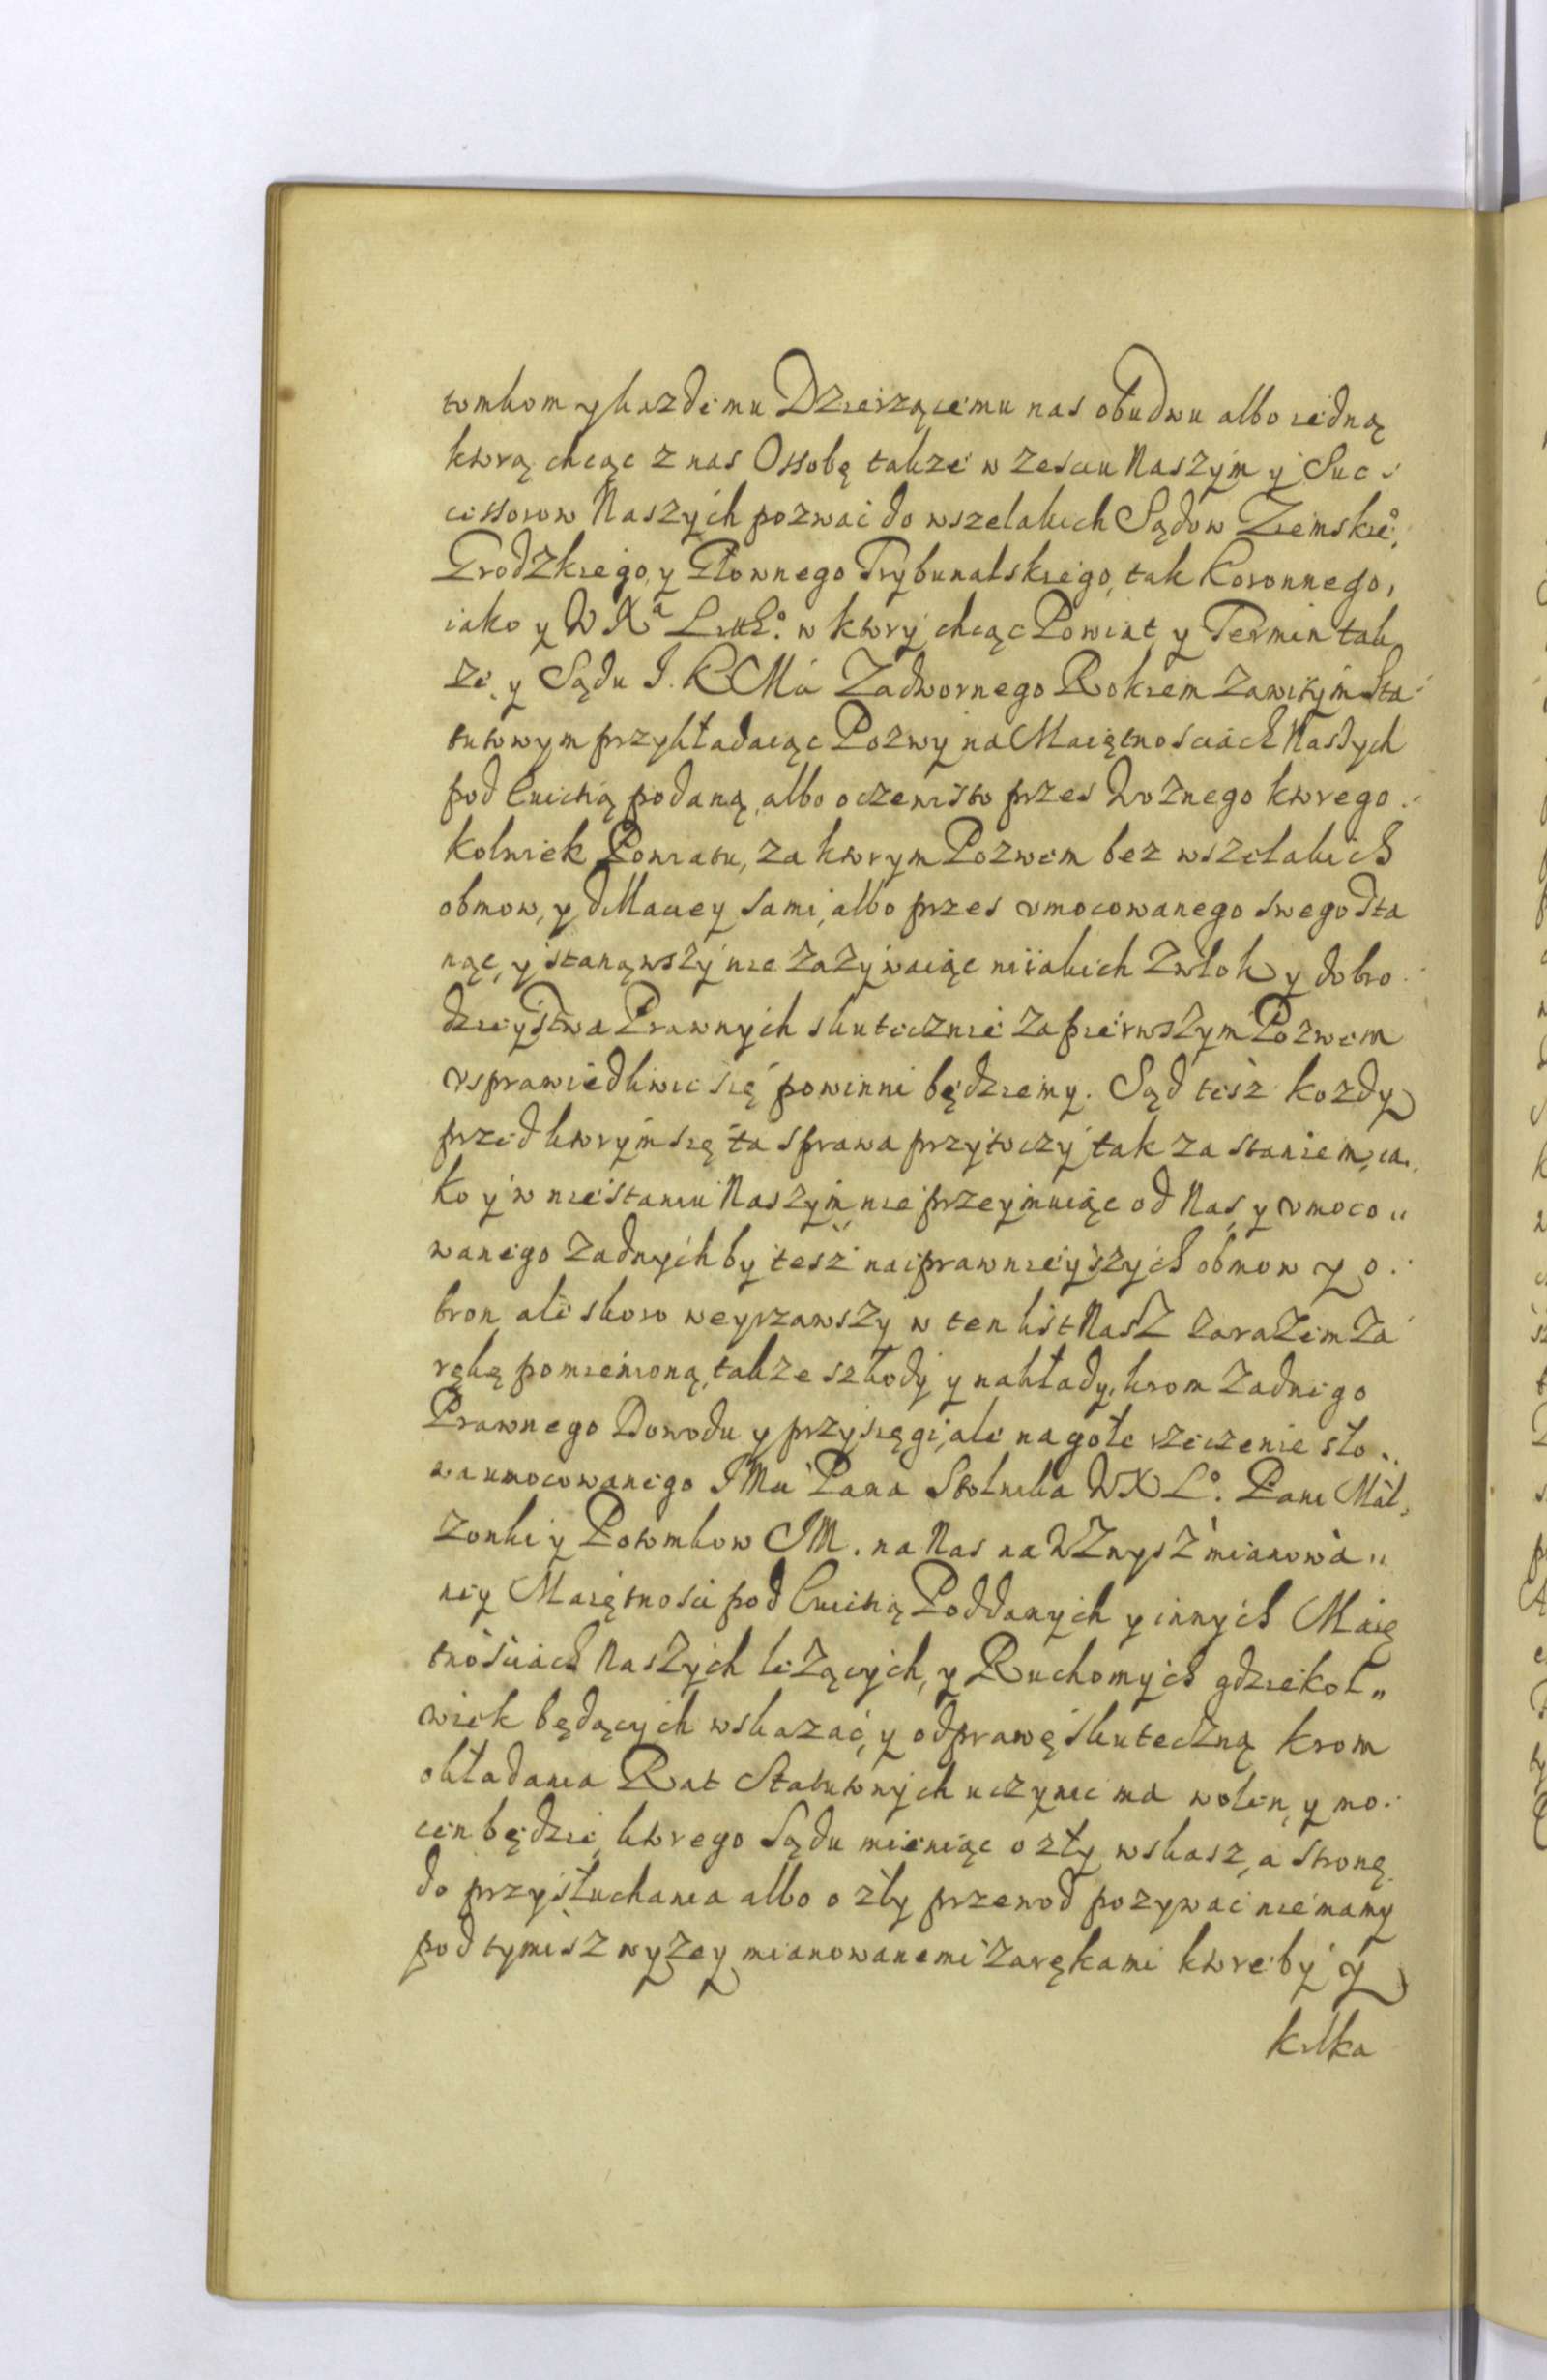 tomkom y każdemu Dzierzącemu nas obudwu albo iedną
ktorą chcąc z nas Ossobę takze w zesciu Naszym y Suc
cessorow Naszych pozwac do wszelakich Sądow Ziemskieo,
Grodzkiego, y Głownego Trybunalskiego, tak Koronnego,
iako y W Xa Littgo. w ktory chcąc Powiat, y Termin tak
ze, y Sądu J. K Mci Zadwornego Rokiem zawitym Sta
tutowym przykładaiąc Pozwy na Maiętnosciach Naszych
pod Ewictią podaną, albo oczewisto przes Woznego ktorego
kolwiek Powiatu, za ktorym Pozwem bez wszelakich
obmow, y dillaciey sami, albo przes vmocowanego swego Sta
nąc, y stanąwszy nie zazywaiąc niiakich Zwłok y dobro
dzieystwa Prawnych skutecznie za pierwszym Pozwem
vsprawiedliwic się powinni będziemy. Sąd tesz kozdy
przed ktorym się ta sprawa przytoczy tak za staniem, ia
ko y w niestaniu Naszym nie przeymuiąc od Nas, y vmoco
wanego zadnych by tesz naiprawnieyszych obmow y o
bron ale skoro weyrzawszy w ten list Nasz zarazem Za
rękę pomienioną, takze szkody y nakłady, krom zadnego
Prawnego Dowodu y przysięgi, ale na gołe rzeczenie sło
wa umocowanego JMci Pana Stolnika WXLo. Pani Mał
zonki y Potomkow JM. na Nas na WZwysz mianowa
ney Maiętnosci pod Ewictią Poddanych y innych Maię
tnościach Naszych leżących, y Ruchomych gdziekol
wiek będących wskazać, y odprawę skuteczną krom
okładania Rat Statutowych uczynic ma wolen, y mo
cen będzie, ktorego Sądu mieniąc o zły wskasz, a stronę
do przysłuchania albo o zły przewod pozywac nie mamy
pod tymisz wyzey mianowanemi Zarękami ktore by y
kilka